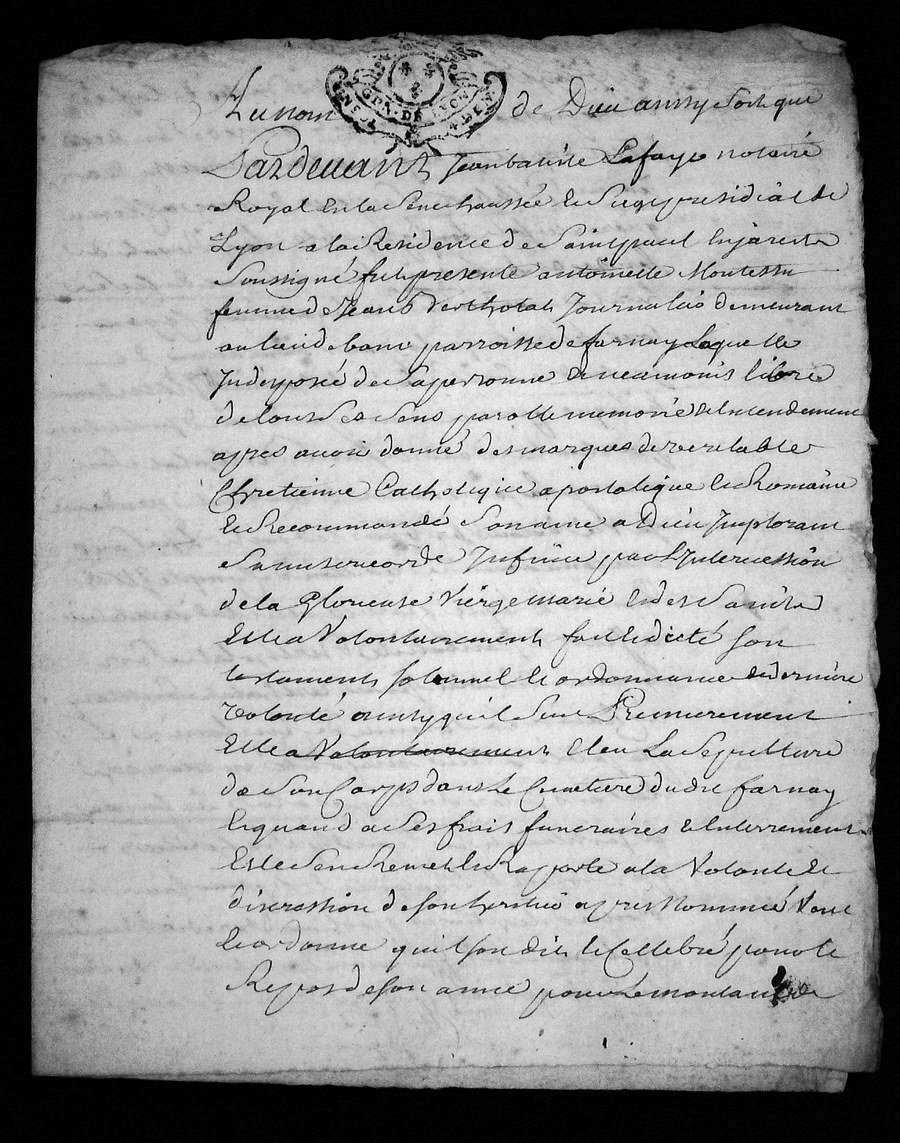 GEN. DE LYON
Au nom de Dieu ainsy soit que
Pardevant Jean batiste Lafaye notaire
Royal en la Senechaussée et Siege presidial de
Lyon a la Residence de Saint paul en jarest
Soussigné fut presente antoinette Montessu
femme de Jean Bertholat Journalié demeurant
au lieu de banc parroisse de farnay Laquelle
Indisposée de Sa personne et neamoins libre
de tous Ses Sens parolle memoire et Entendement
apres avoir donné des marques de veritable
Chretienne Catholique apostolique et Romaine
et Recommandé Son ame a Dieu Implorant
Sa misericorde Infinie par L'Intercession
de la Glorieuse Viergemarie et des Saints
Elle a Volontairement fait et dicté son
testament solennel et ordonnance de derniere
volonté ainsy quil Suit Premierement
Elle a Volontairement Eleu La Sepulture
de Son Corps dans Le Cimetiere dudit farnay
Et quand a Ses frais funeraires et Enterrement
Elle Sen Remet et Raporte a la Volonté et
discression de son heritié apres Nommé Veut
et ordonne quil soit dit et Cellebré pour le
Repos de son ame pour Le montant de